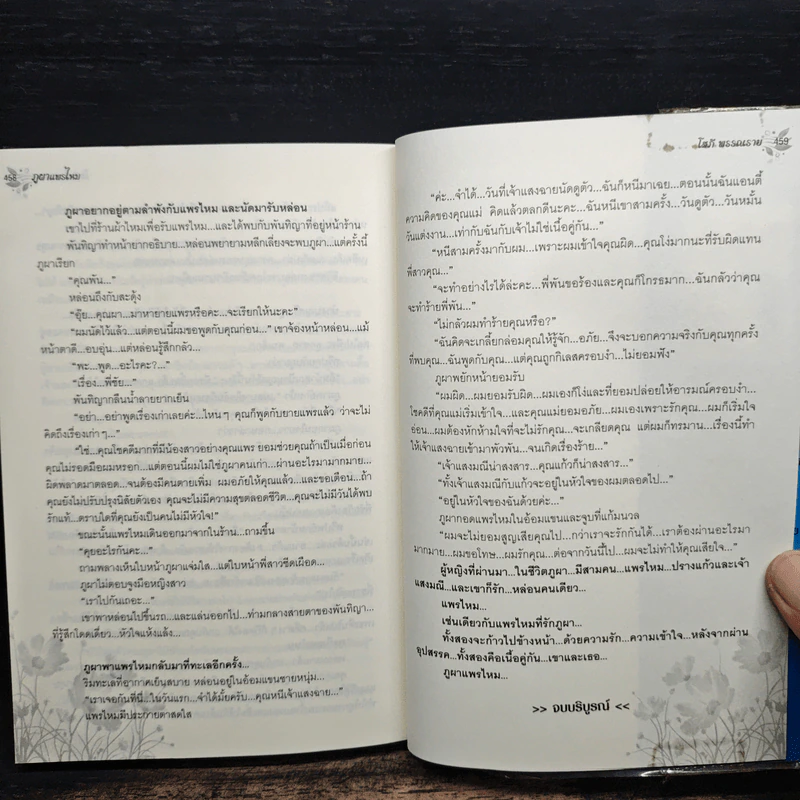 458 ภูผาแพรไหม
ภูผาอยากอยู่ตามลำพังกับแพรไหม และนัดมารับหล่อน
เขาไปที่ร้านผ้าไหมเพื่อรับแพรไหม...และได้พบกับพันทิญาที่อยู่หน้าร้าน
พันทิญาทำหน้ายากอธิบาย...หล่อนพยายามหลีกเลี่ยงจะพบภูผา...แต่ครั้งนี้
ภูผาเรียก
“คุณพัน...”
หล่อนถึงกับสะดุ้ง
“อุ๊ย...คุณผา...มาหายายแพรหรือคะ...จะเรียกให้นะคะ”
“ผมนัดไว้แล้ว...แต่ตอนนี้ผมขอพูดกับคุณก่อน...” เขาจ้องหน้าหล่อน...แม้
หน้าตาดี...อบอุ่น...แต่หล่อนรู้สึกกลัว...
“พะ...พูด...อะไรคะ?...”
“เรื่อง...พี่ชัย...”
พันทิญากลืนน้ำลายยากเย็น
“อย่า...อย่าพูดเรื่องเก่าเลยค่ะ...ไหนๆ คุณก็พูดกับยายแพรแล้ว ว่าจะไม่
คิดถึงเรื่องเก่าๆ...”
“ใช่...คุณโชคดีมากที่มีน้องสาวอย่างคุณแพร ยอมช่วยคุณถ้าเป็นเมื่อก่อน
คุณไม่รอดมือผมหรอก...แต่ตอนนี้ผมไม่ใช่ภูผาคนเก่า...ผ่านอะไรมามากมาย...
ผิดพลาดมาตลอด...จนต้องมีคนตายเพิ่ม ผมอภัยให้คุณแล้ว...และขอเตือน...ถ้า
คุณยังไม่ปรับปรุงนิสัยตัวเอง คุณจะไม่มีความสุขตลอดชีวิต...คุณจะไม่มีวันได้พบ
รักแท้...ตราบใดที่คุณยังเป็นคนไม่มีหัวใจ!”
ขณะนั้นแพรไหมเดินออกมาจากในร้าน...ถามขึ้น
“คุยอะไรกันคะ...”
ถามพลางเห็นใบหน้าภูผาแจ่มใส...แต่ใบหน้าพี่สาวซีดเผือด...
ภูผาไม่ตอบจูงมือหญิงสาว
“เราไปกันเถอะ...”
เขาพาหล่อนไปขึ้นรถ...และแล่นออกไป...ท่ามกลางสายตาของพันทิญา...
ที่รู้สึกโดดเดี่ยว...หัวใจแห้งแล้ง...
ภูผาพาแพรไหมกลับมาที่ทะเลอีกครั้ง...
ริมทะเลที่อากาศเย็นสบาย หล่อนอยู่ในอ้อมแขนชายหนุ่ม...
“เราเจอกันที่นี่...ในวันแรก...จำได้มั้ยครับ...คุณหนีเจ้าแสงฉาย...”
แพรไหมมีประกายตาสดใส
โสภี พรรณราย 459
“ค่ะ...จำได้...วันที่เจ้าแสงฉายนัดดูตัว...ฉันก็หนีมาเฉย...ตอนนั้นฉันแอนตี้
ความคิดของคุณแม่ คิดแล้วตลกดีนะคะ...ฉันหนีเขาสามครั้ง...วันดูตัว...วันหมั้น
วันแต่งงาน...เท่ากับฉันกับเจ้าไม่ใช่เนื้อคู่กัน...”
“หนีสามครั้งมากับผม...เพราะผมเข้าใจคุณผิด...คุณโง่มากนะที่รับผิดแทน
พี่สาวคุณ...”
“จะทำอย่างไรได้ล่ะคะ...พี่พันขอร้องและคุณก็โกรธมาก...ฉันกลัวว่าคุณ
จะทำร้ายพี่พัน...”
“ไม่กลัวผมทำร้ายคุณหรือ?”
“ฉันคิดจะเกลี้ยกล่อมคุณให้รู้จัก...อภัย...จึงจะบอกความจริงกับคุณทุกครั้ง
ที่พบคุณ...ฉันพูดกับคุณ...แต่คุณถูกกิเลสครอบงำ...ไม่ยอมฟัง”
ภูผาพยักหน้ายอมรับ
“ผมผิด...ผมยอมรับผิด...ผมเองก็โง่และที่ยอมปล่อยให้อารมณ์ครอบงำ...
โชคดีที่คุณแม่เริ่มเข้าใจ...และคุณแม่ยอมอภัย...ผมเองเพราะรักคุณ...ผมก็เริ่มใจ
อ่อน...ผมต้องหักห้ามใจที่จะไม่รักคุณ...จะเกลียดคุณ แต่ผมก็ทรมาน...เรื่องนี้ทำ
ให้เจ้าแสงฉายเข้ามาพัวพัน...จนเกิดเรื่องร้าย...”
“เจ้าแสงมณีน่าสงสาร...คุณแก้วก็น่าสงสาร...”
“ทั้งเจ้าแสงมณีกับแก้วจะอยู่ในหัวใจของผมตลอดไป...”
“อยู่ในหัวใจของฉันด้วยค่ะ...”
ภูผากอดแพรไหมในอ้อมแขนและจูบที่แก้มนวล
“ผมจะไม่ยอมสูญเสียคุณไป...กว่าเราจะรักกันได้...เราต้องผ่านอะไรมา
มากมาย...ผมขอโทษ...ผมรักคุณ...ต่อจากวันนี้ไป...ผมจะไม่ทำให้คุณเสียใจ...”
ผู้หญิงที่ผ่านมา...ในชีวิตภูผา...มีสามคน...แพรไหม...ปรางแก้วและเจ้า
แสงมณี...และเขาก็รัก...หล่อนคนเดียว...
แพรไหม...
เช่นเดียวกับแพรไหมที่รักภูผา...
ทั้งสองจะก้าวไปข้างหน้า...ด้วยความรัก...ความเข้าใจ...หลังจากผ่าน
อุปสรรค...ทั้งสองคือเนื้อคู่กัน...เขาและเธอ...
ภูผาแพรไหม...
>> จบบริบูรณ์ <<